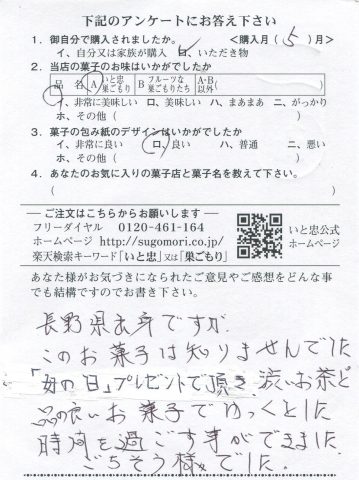 下記のアンケートにお答え下さい
1. 御自分で購入されましたか。 <購入月( 5 )月>
イ、自分又は家族が購入 ロ、いただき物
2. 当店の菓子のお味はいかがでしたか
品 名 A いと忠巣ごもり B フルーツな巣ごもりたち A・B以外( )
イ、非常に美味しい ロ、美味しい ハ、まあまあ ニ、がっかり
ホ、その他( )
3. 菓子の包み紙のデザインはいかがでしたか
イ、非常に良い ロ、良い ハ、普通 ニ、悪い
ホ、その他( )
4. あなたのお気に入りの菓子店と菓子名を教えて下さい。
( )
― ご注文はこちらからお願いします ―
フリーダイヤル 0120-461-164
ホームページ http://sugomori.co.jp/
楽天検索キーワード「いと忠」又は「巣ごもり」
いと忠公式
ホームページ
あなた様がお気づきになられたご意見やご感想をどんな事
でも結構ですのでお書き下さい。
長野県出身ですが、
このお菓子は知りませんでした
「母の日」プレゼントで頂き、渋いお茶と
品の良いお菓子でゆっくとした
時間を過ごす事ができました。
ごちそう様でした。